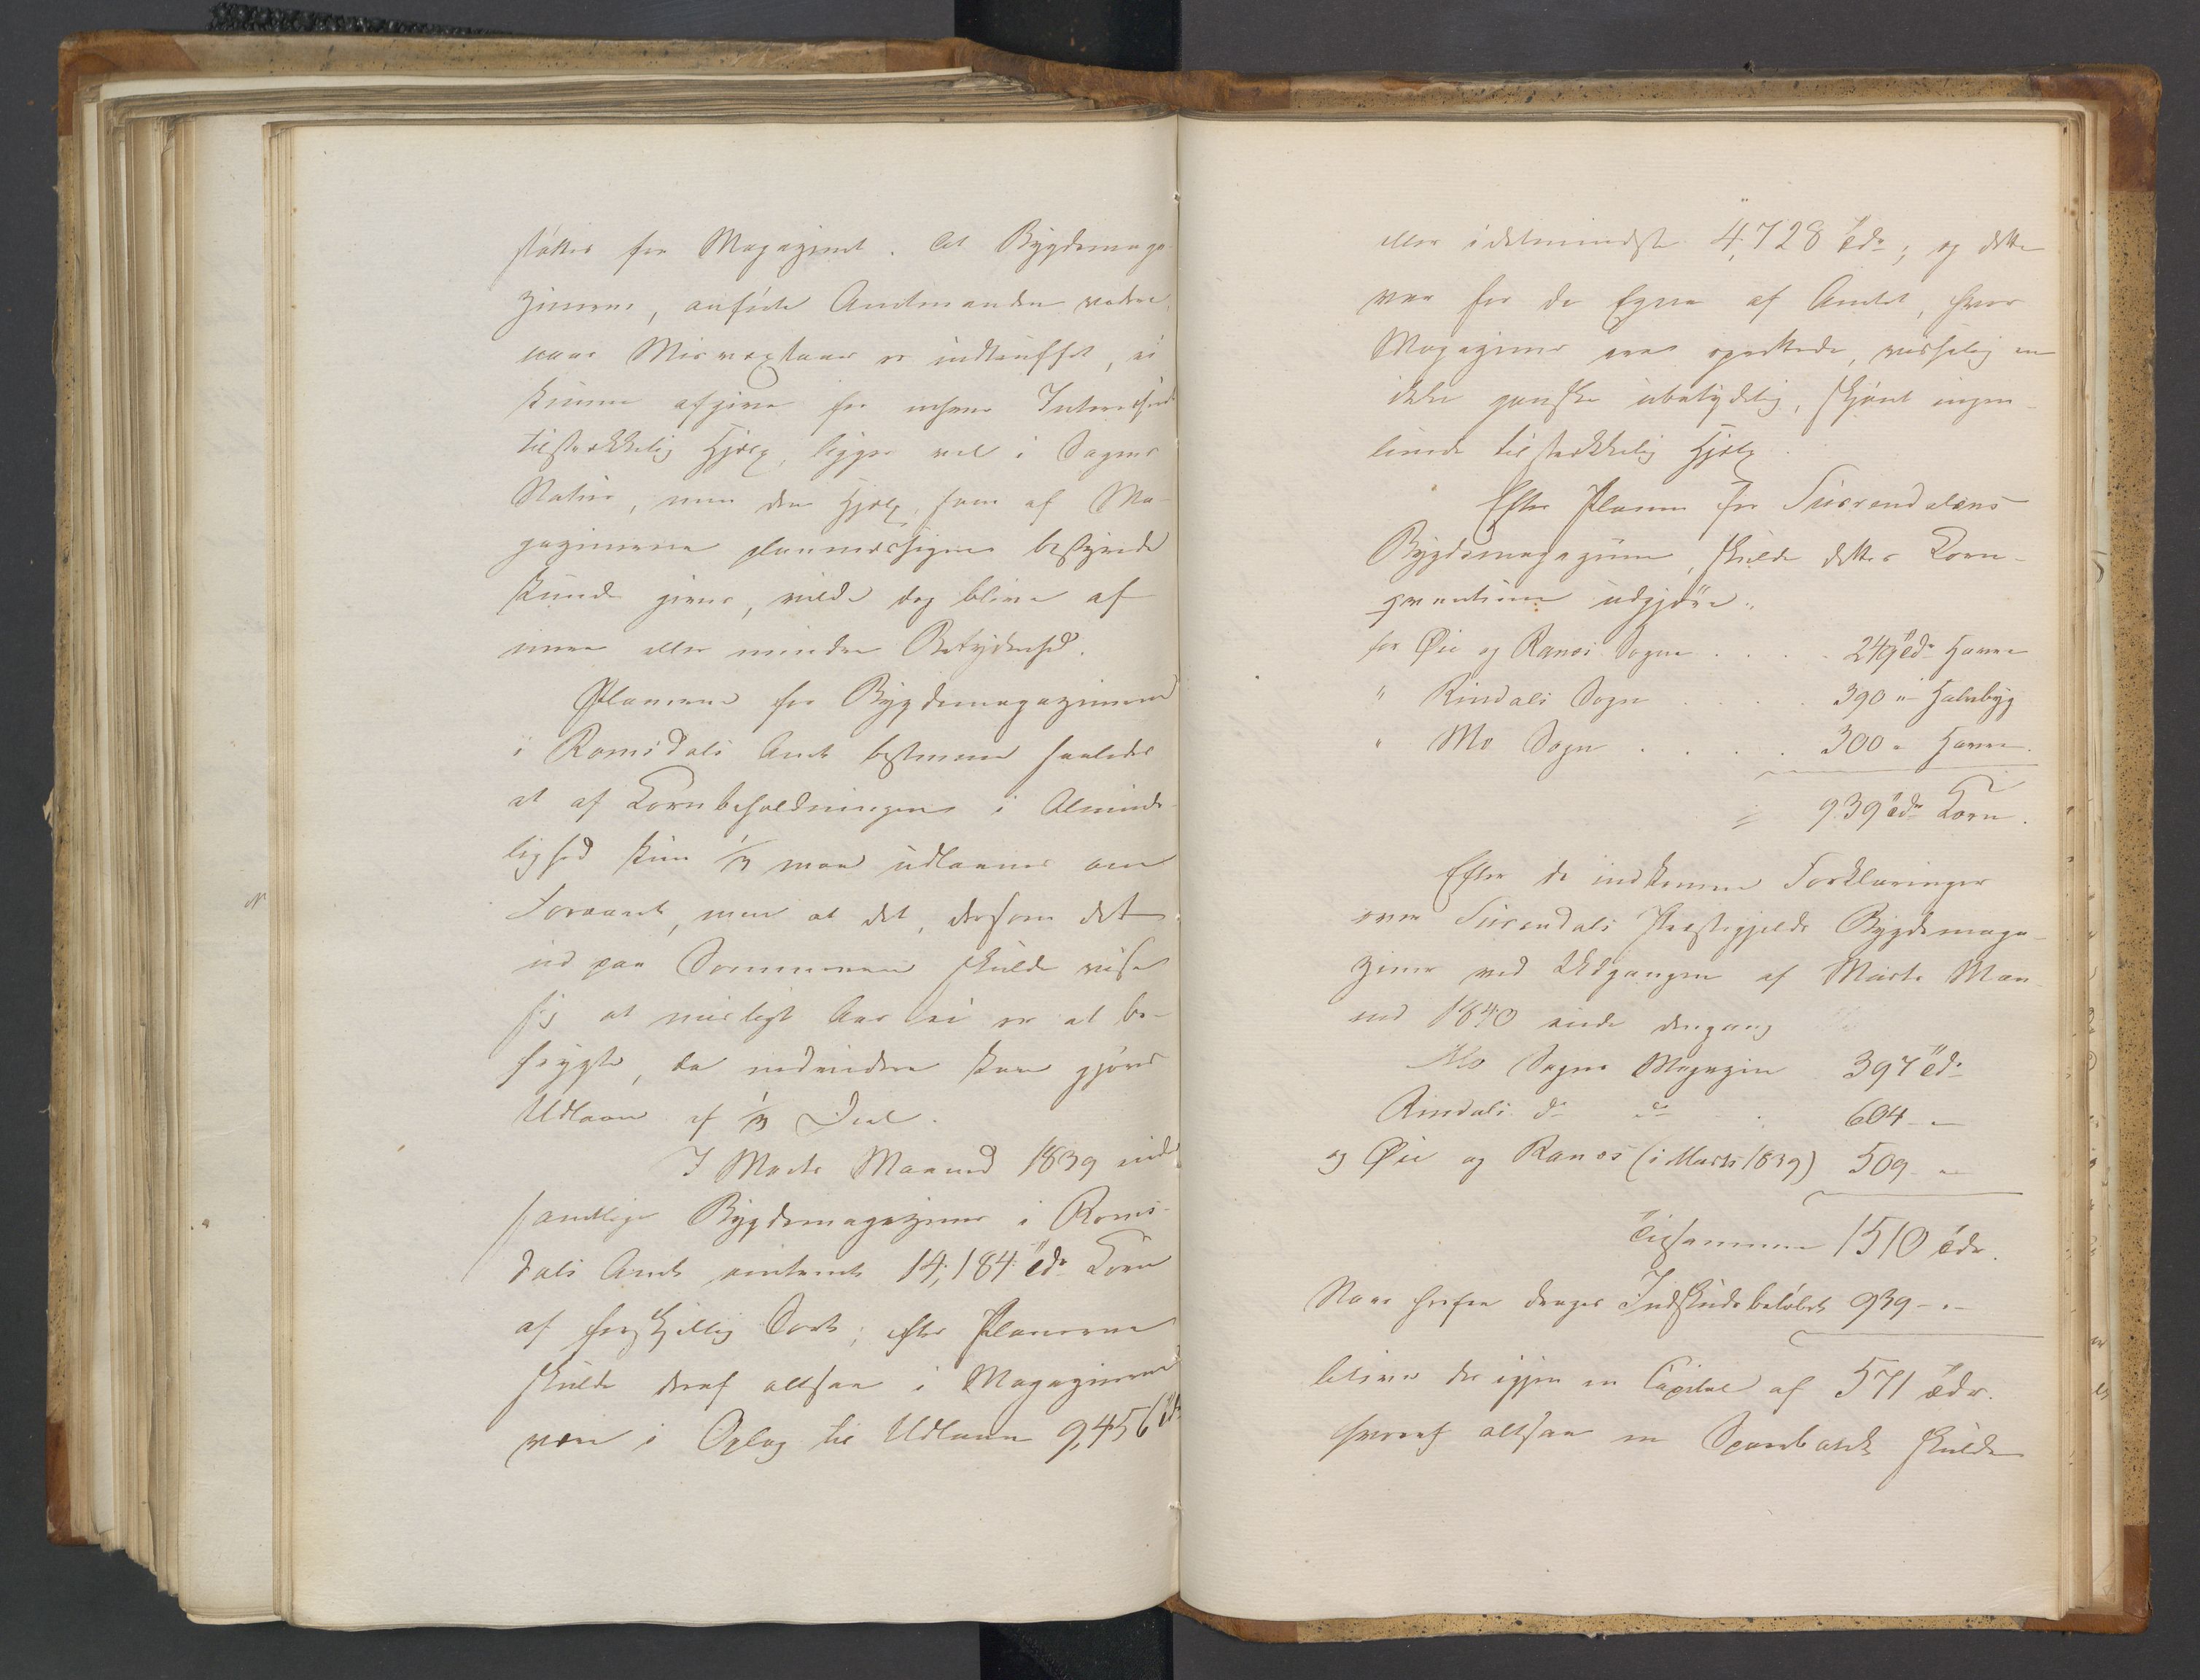 støttes for Magazinet. At Bygdemaga-
zinerne, anførte Amtmanden videre,
naar Misvæxtaar er indtruffet, ei
kunne afgive for enhver Interessent
tilstrækkelig Hjælp, ligger vel i Sagens
Natur, men den Hjælp, som af Ma-
gazinerne planmæssigen bestyrede
kunde gives, vilde dog blive af
mere eller mindre Betydenhed.
Planerne for Bygdemagazinerne
i Romsdals Amt bestemme saaledes
at af Kornbeholdningen i Alminde-
lighed kun 1/3 maa udlaanes om
Foraaret, men at det, dersom det
ud paa Sommeren skulde vise
sig at misligt Aar ei er at be-
frygte, da endvidere kan gjøres
Udlaan af 1/3 Deel.
I Marts Maaned 1839 eiede
samtlige Bygdemagaziner i Roms-
dals Amt omtrent 14,184 Tdr Korn
af forskjellig Sort; efter Planerne
skulde deraf altsaa i Magazinerne
være i Oplag til Udlaan 9,456 Tdr
eller idetmindste 4,728 Tdr; og dette
var for de Egne af Amtet, hvor
Magaziner vare oprettede, visselig en
ikke ganske ubetydelig, skjønt ingen-
lunde tilstrækkelig Hjælp.
Efter Planen for Surendalens
Bygdemagaziner, skulde dettes Korn-
qvantum udgjøre:
for Øie og Ranes Sogne . . . . 249 Tdr Havre
" Rindals Sogn . . . . 390 " Halvbyg
" Mo Sogn . . . . 300 " Havre.
= 939 Tdr Korn.
Efter de indkomne Forklaringer
over Surendals Præstegjelds Bygdemaga-
ziner ved Udgangen af Marts Maa-
ned 1840 eiede dengang
Mo Sogns Magazin 397 Tdr
Rindals do do . 604 "
og Øie og Ranes (i Marts 1839) 509 "
Tilsammen 1510 Tdr.
Naar herfra drages Indskudsbeløbet 939 - " -
bliver der igjen en Capital af 571 Tdr.
hvoraf altsaa en Sparebank skulde